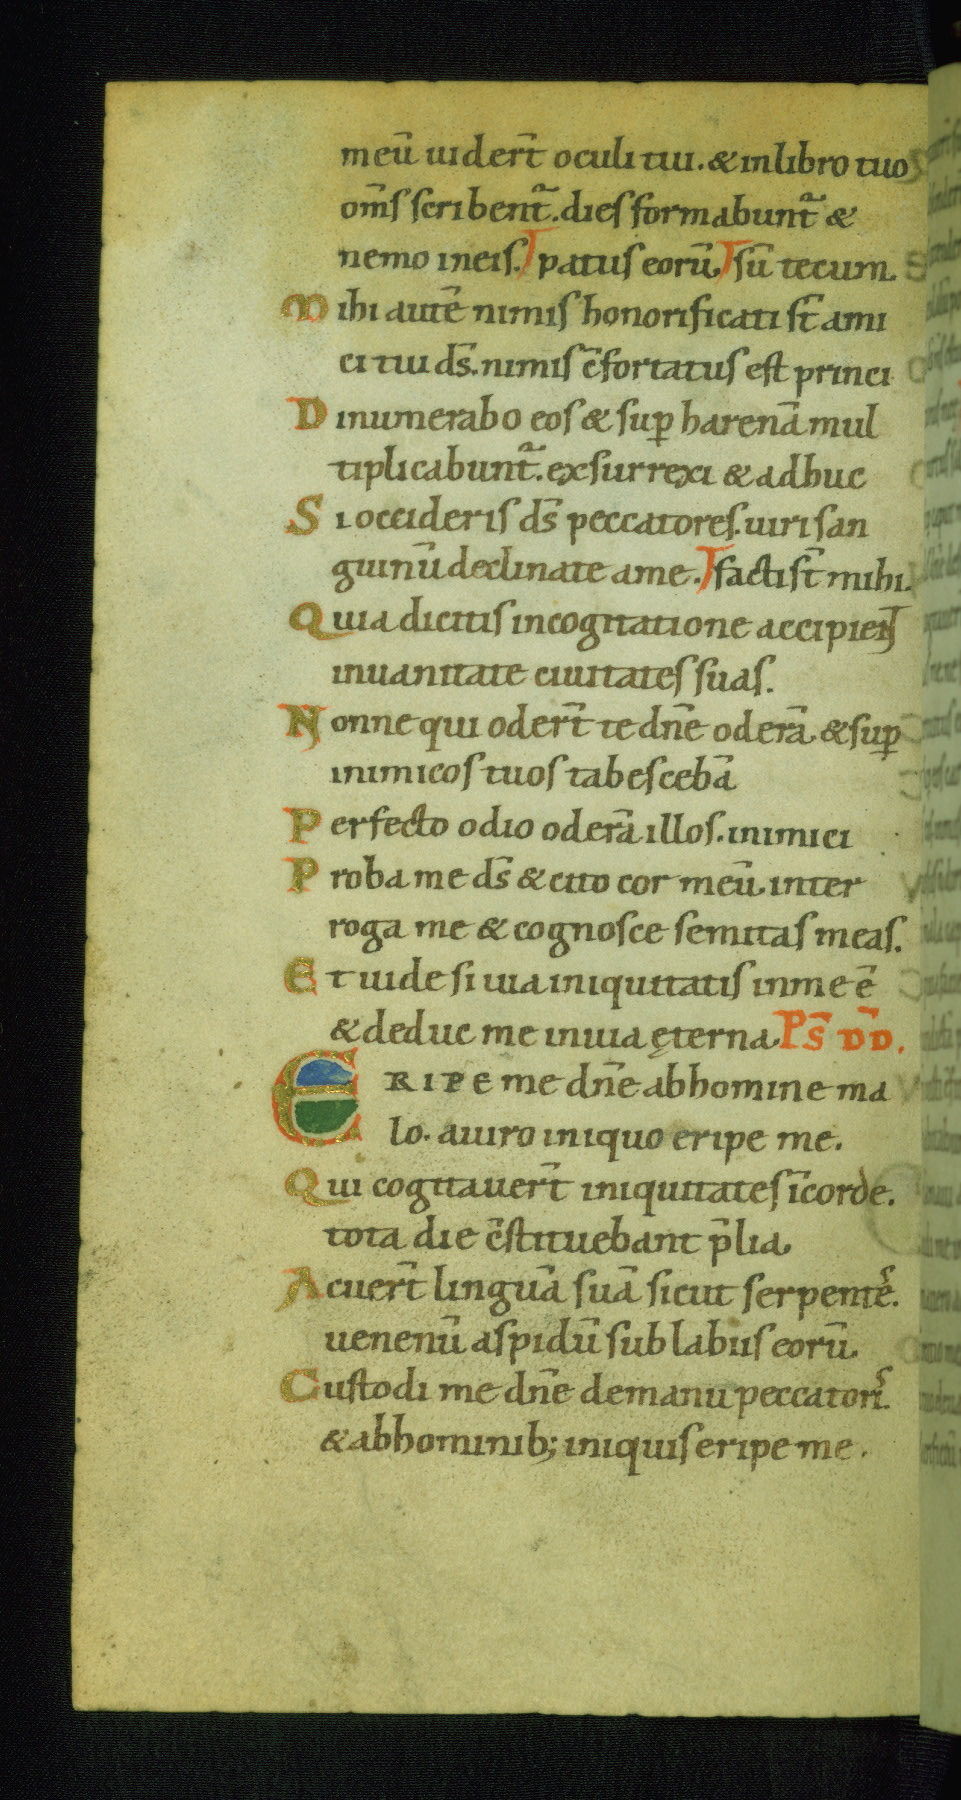 meū uidert̄ oculi tui. & in libro tuo
om̄s scribent᷑. dies formabunt᷑ &
nemo in eis. patus eorū sū tecum.
Mihi autē nimis honorificati st̄ ami
ci tui ds̄. nimis c̄fortatus est princi
Dinumerabo eos & suꝑ harenā mul
tiplicabunt᷑. exsurrexi & adhuc
Si occideris ds̄ peccatores. uiri san
guinū declinate a me. facti st̄ mihi.
Quia dicitis in cogitatione accipient
in uanitate ciuitates suas.
Nonne qui odert̄ te dn̄e oderā. & suꝑ
inimicos tuos tabescebā
Perfecto odio oderā illos. inimici
Proba me ds̄ & cito cor meū. inter
roga me & cognosce semitas meas.
Et uide si uia iniquitatis in me ē
& deduc me in uia ęterna Ps̄ DD̄.
ERIPE me dn̄e ab homine ma
lo. a uiro iniquo eripe me.
Qui cogitauert̄ iniquitates ī corde.
tota die c̄stituebant p̄lia
Acuert̄ linguā suā sicut serpentēs.
uenenū aspidū sub labiis eorū.
Custodi me dn̄e de manu peccatoris.
& ab hominib; iniquis eripe me.